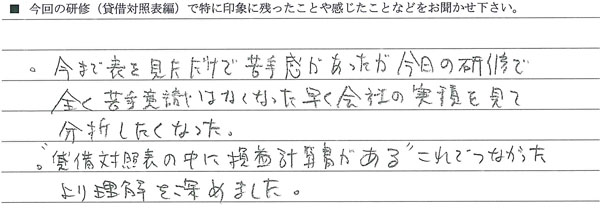 ■ 今回の研修（貸借対照表編）で特に印象に残ったことや感じたことなどをお聞かせ下さい。
。今まで表を見ただけで苦手感があったが今日の研修で
全く苦手意識はなくなった早く会社の実積を見て
分析したくなった。
。"貸借対照表の中に損益計算書がある"これでつながった
より理解を深めました。